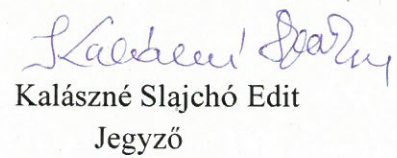 Kalászné Slajchó Edit
Jegyző